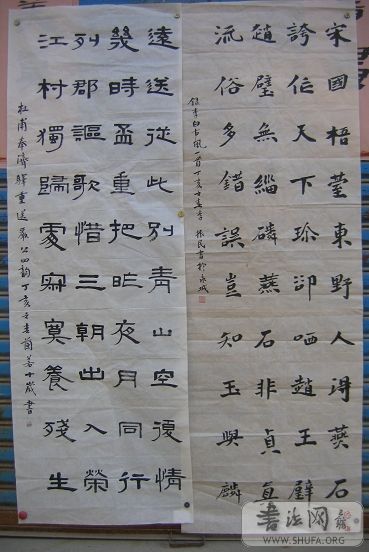 宋國梧臺東野人得燕石
誇作天下珍卻哂趙王璧
趙璧無緇磷燕石非貞真
流俗多錯誤豈知玉與麟
錄李白古風一首丁亥春振民書於
遠送從此別青山空復情
幾時盃重把昨夜月同行
列郡謳歌惜三朝出入榮
江村獨歸處寂寞養殘生
杜甫奉濟驛重送嚴公四韵丁亥十歲書
書法网
WWW.SHUFA.ORG